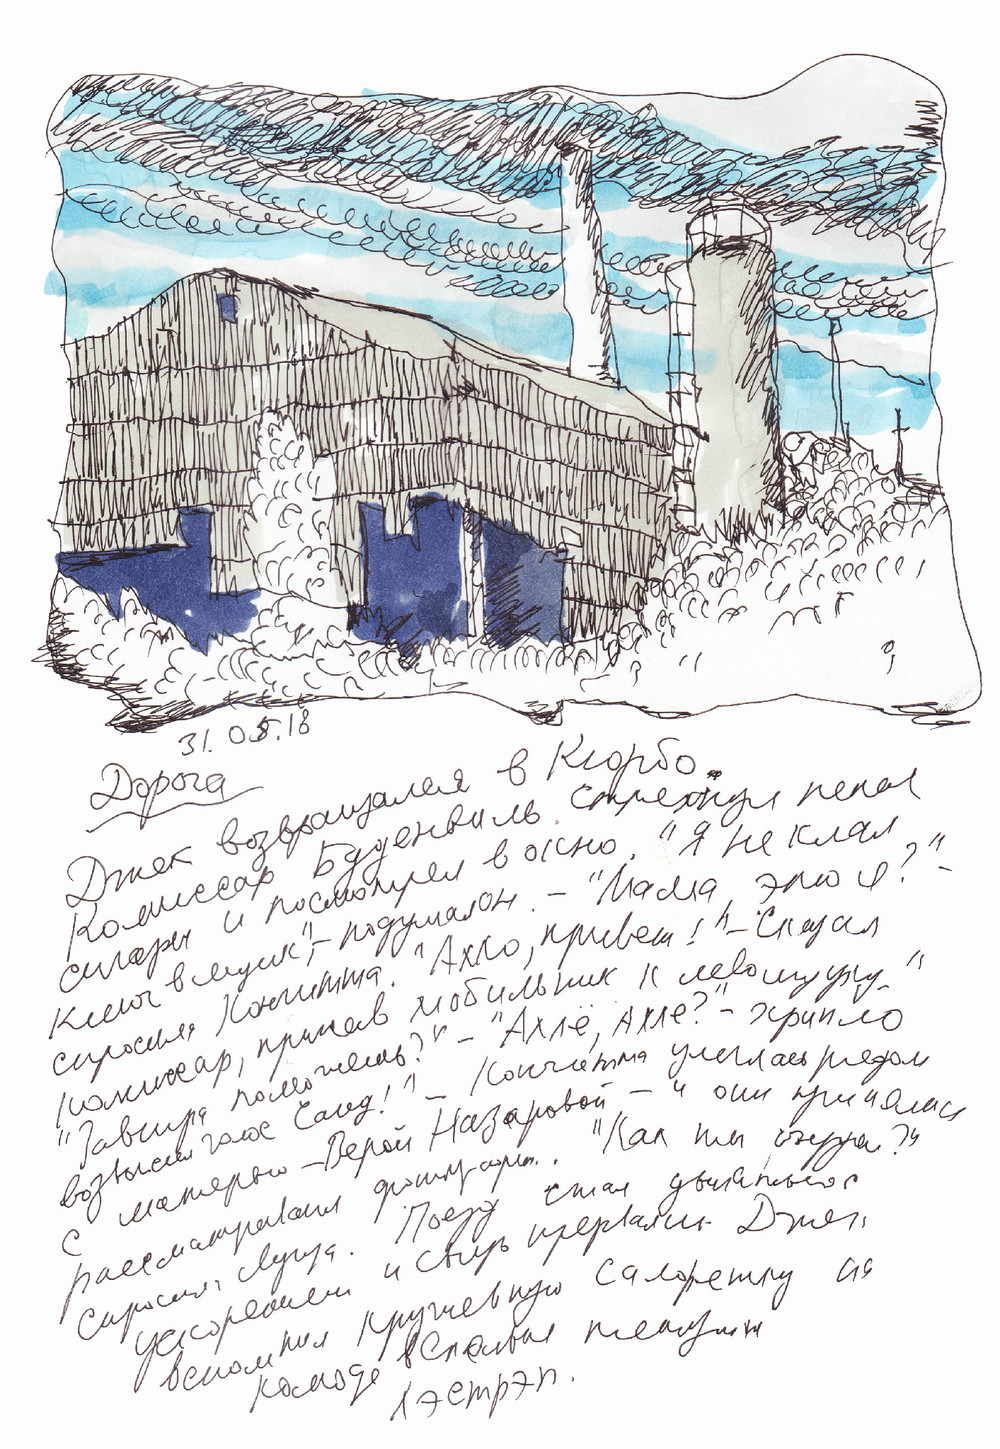 31.05.18
Дорога
Джек возвращался в Кюрбо.
Комиссар Буденвиль стряхнул пепел
сигары и посмотрел в окно. "Я не клал
ключ в ящик", - подумал он. - "Мама, это я?" -
спросила Кончитта. "Алло, привет!" - Сказал
комиссар, прижав мобильник к левому уху.
"Завтра поможешь?" - "Алле, Алле?" - хрипло
возвысил голос Саид!" - Кончитта улеглась рядом
с матерью - Верой Назаровой - и они принялись
рассматривать фотографии. "Как ты
спросила Луиза. Поезд стал двигаться с
ускорением и связь прервалась. Джек
вспомнил кружевную салфетку на
комоде в спальне